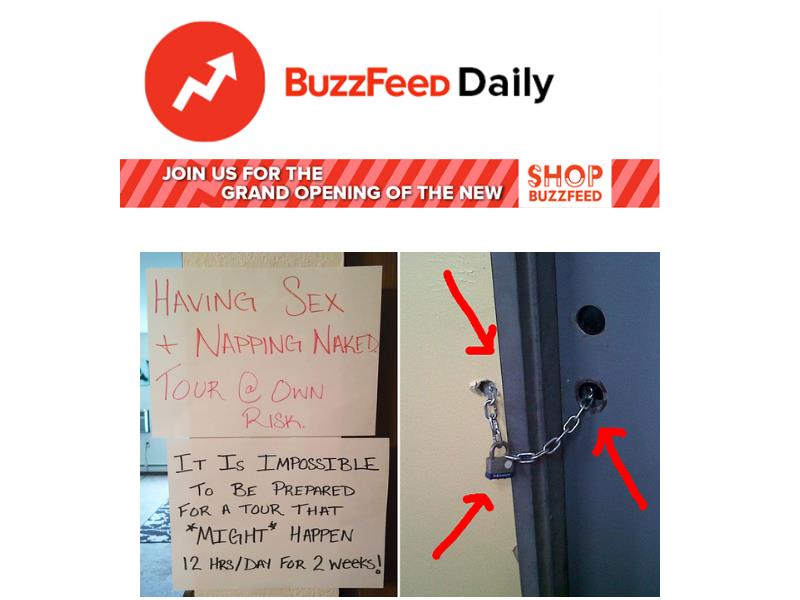 BuzzFeed Daily
JOIN US FOR THE
GRAND OPENING OF THE NEW
SHOP
BUZZFEED
HAVING SEX
+ NAPPING NAKED
TOUR @ OWN
RISK.
IT IS IMPOSSIBLE
TO BE PREPARED
FOR A TOUR THAT
*MIGHT* HAPPEN
12 HRS/DAY FOR 2 WEEKS!